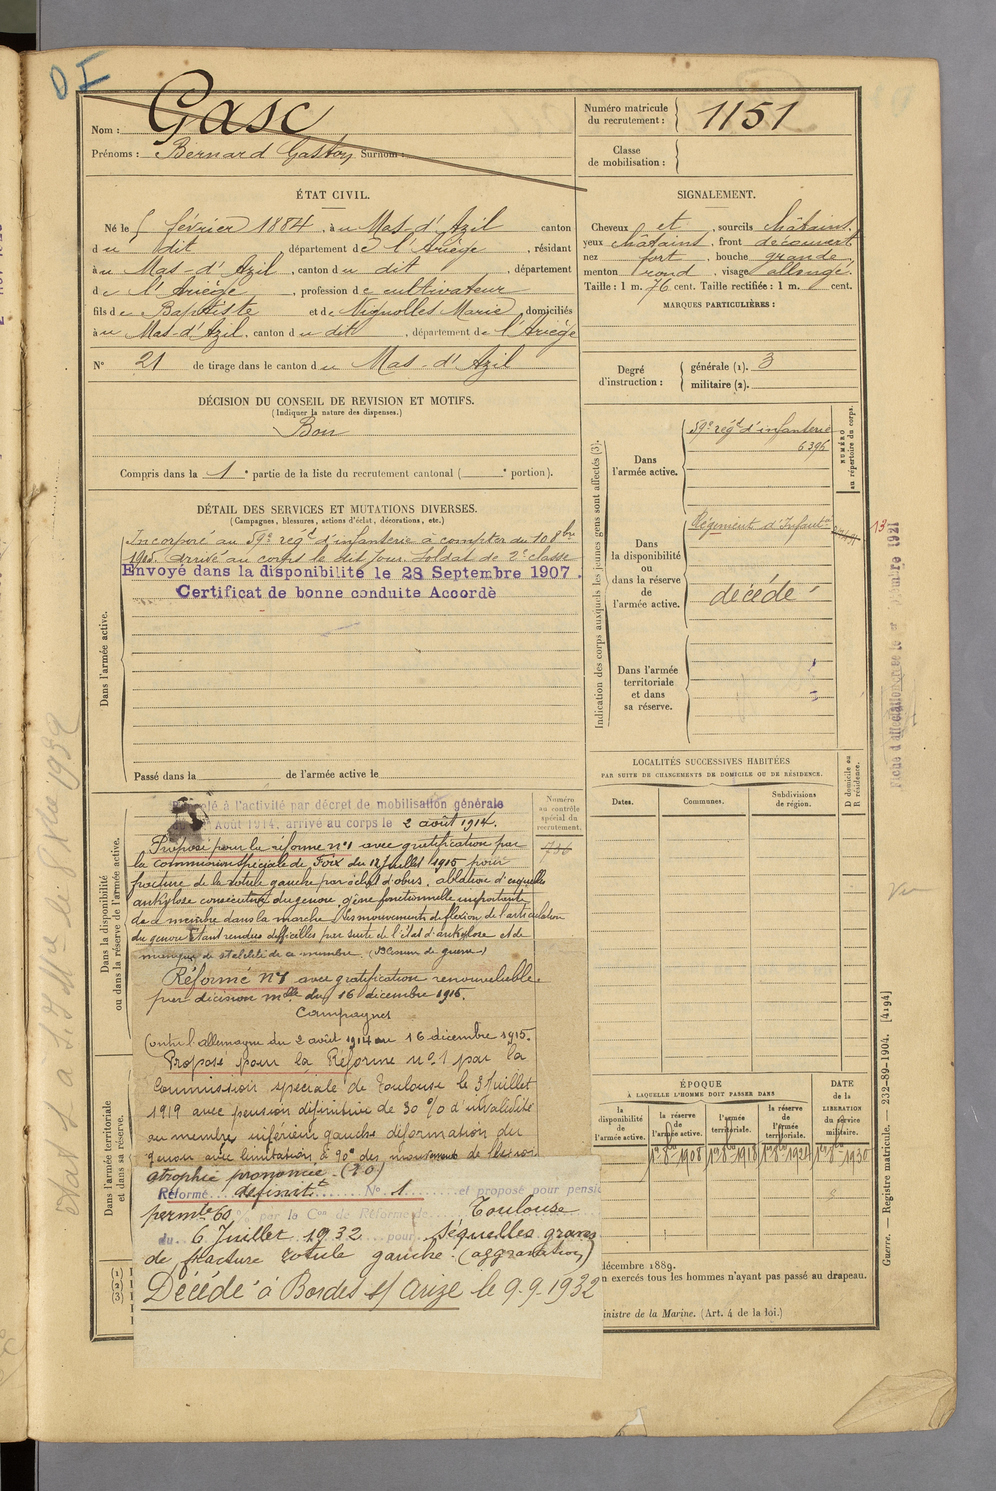 D I
Nom : Gasc
Prénoms : Bernard Gaston Surnom :
Numéro matricule du recrutement : 1151
Classe de mobilisation :
ÉTAT CIVIL.
Né le 5 février 1884, à u Mas-d'Azil canton
d u dit, département de l'Ariège, résidant
à u Mas-d'Azil, canton d u dit, département
de l'Ariège, profession de cultivateur
fils de Baptiste et de Vignolles Marie domiciliés
à u Mas-d'Azil, canton d u dit, département de l'Ariège
N° 21 de tirage dans le canton d u Mas-d'Azil
SIGNALEMENT.
Cheveux et, sourcils châtains.
yeux châtains, front découvert
nez fort, bouche grande,
menton rond, visage allongé.
Taille : 1 m. 76 cent. Taille rectifiée : 1 m. cent.
MARQUES PARTICULIÈRES :
Degré d'instruction :
générale (1). 3
militaire (2).
DÉCISION DU CONSEIL DE REVISION ET MOTIFS.
(Indiquer la nature des dispenses.)
Bon
Compris dans la 1e partie de la liste du recrutement cantonal ( e portion).
DÉTAIL DES SERVICES ET MUTATIONS DIVERSES.
(Campagnes, blessures, actions d'éclat, décorations, etc.)
Dans l'armée active.
Incorporé au 59e régt d'infanterie à compter du 10 8bre
1905. Arrivé au corps le dit jour. Soldat de 2e classe
Envoyé dans la disponibilité le 28 Septembre 1907.
Certificat de bonne conduite Accordé
Passé dans la de l'armée active le
Indication des corps auxquels les jeunes gens sont affectés (3).
NUMÉRO au répertoire du corps.
Dans l'armée active.
59e régt d'infanterie
6396
Dans la disponibilité ou dans la réserve de l'armée active.
Régiment d'Infantie
décédé
Dans l'armée territoriale et dans sa réserve.
LOCALITÉS SUCCESSIVES HABITÉES
PAR SUITE DE CHANGEMENTS DE DOMICILE OU DE RÉSIDENCE.
Dates.
Communes.
Subdivisions de région.
D domicile ou R résidence.
Dans la disponibilité ou dans la réserve de l'armée active.
Numéro au contrôle spécial du recrutement.
Rappelé à l'activité par décret de mobilisation générale
Août 1914, arrivé au corps le 2 août 1914.
Proposé pour la réforme n°1 avec gratification par
la commission spéciale de Foix du 17 juillet 1915 pour
fracture de la rotule gauche par éclat d'obus, ablation d'esquilles
ankylose consécutive du genou, gêne fonctionnelle importante
de ce membre dans la marche, les mouvements de flexion de l'articulation
du genou étant rendus difficiles par suite de l'état d'ankylose et de
manque de stabilité de ce membre. (Blessure de guerre)
Réformé N°1 avec gratification renouvelable.
par décision mlle du 16 décembre 1915.
Campagnes
Contre l'allemagne du 2 août 1914 au 16 décembre 1915.
Proposé pour la Réforme n° 1 par la
Commission spéciale de Toulouse le 3 Juillet
1919 avec pension définitive de 30 % d'invalidité
au membre inférieur gauche déformation du
genou avec limitation à 90° des mouvement de flexion
atrophie prononcée. (20)
Réformé définitt N° 1 et proposé pour pensi
permte 60 % par la Con de Réforme de Toulouse
du 6 Juillet 1932 pour séquelles graves
de fracture rotule gauche. (aggravation)
Décédé à Bordes s/ Arize le 9-9-1932
Dans l'armée territoriale et dans sa réserve.
(1) (2) (3)
ÉPOQUE
À LAQUELLE L'HOMME DOIT PASSER DANS
la disponibilité de l'armée active.
la réserve de l'armée active.
l'armée territoriale.
la réserve de l'armée territoriale.
DATE de la LIBERATION du service militaire.
1er 8bre 1908
1er 8bre 1918
1er 8bre 1924
1er 8bre 1930
décembre 1889.
n exercés tous les hommes n'ayant pas passé au drapeau.
inistre de la Marine. (Art. 4 de la loi.)
Guerre. — Registre matricule. — 232-89-1904. [4194]
13
Vu